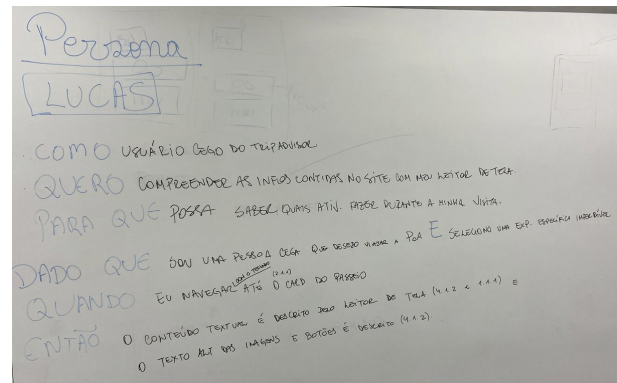 Persona
LUCAS
· COMO USUÁRIO CEGO DO TRIPADVISOR
· QUERO COMPREENDER AS INFOS CONTIDAS NO SITE COM MEU LEITOR DE TELA.
PARA QUE POSSA SABER QUAIS ATIV. FAZER DURANTE A MINHA VISITA.
DADO QUE SOU UMA PESSOA CEGA QUE DESEJO VIAJAR A POA E SELECIONO UMA EXP. ESPECÍFICA
(2.1.1)
QUANDO EU NAVEGAR ATÉ O CARD DO PASSEIO
ENTÃO O CONTEÚDO TEXTUAL É DESCRITO PELO LEITOR DE TELA (4.1.2 e 1.1.1) E
O TEXTO ALT DAS IMAGENS E BOTÕES É DESCRITO (4.1.2).